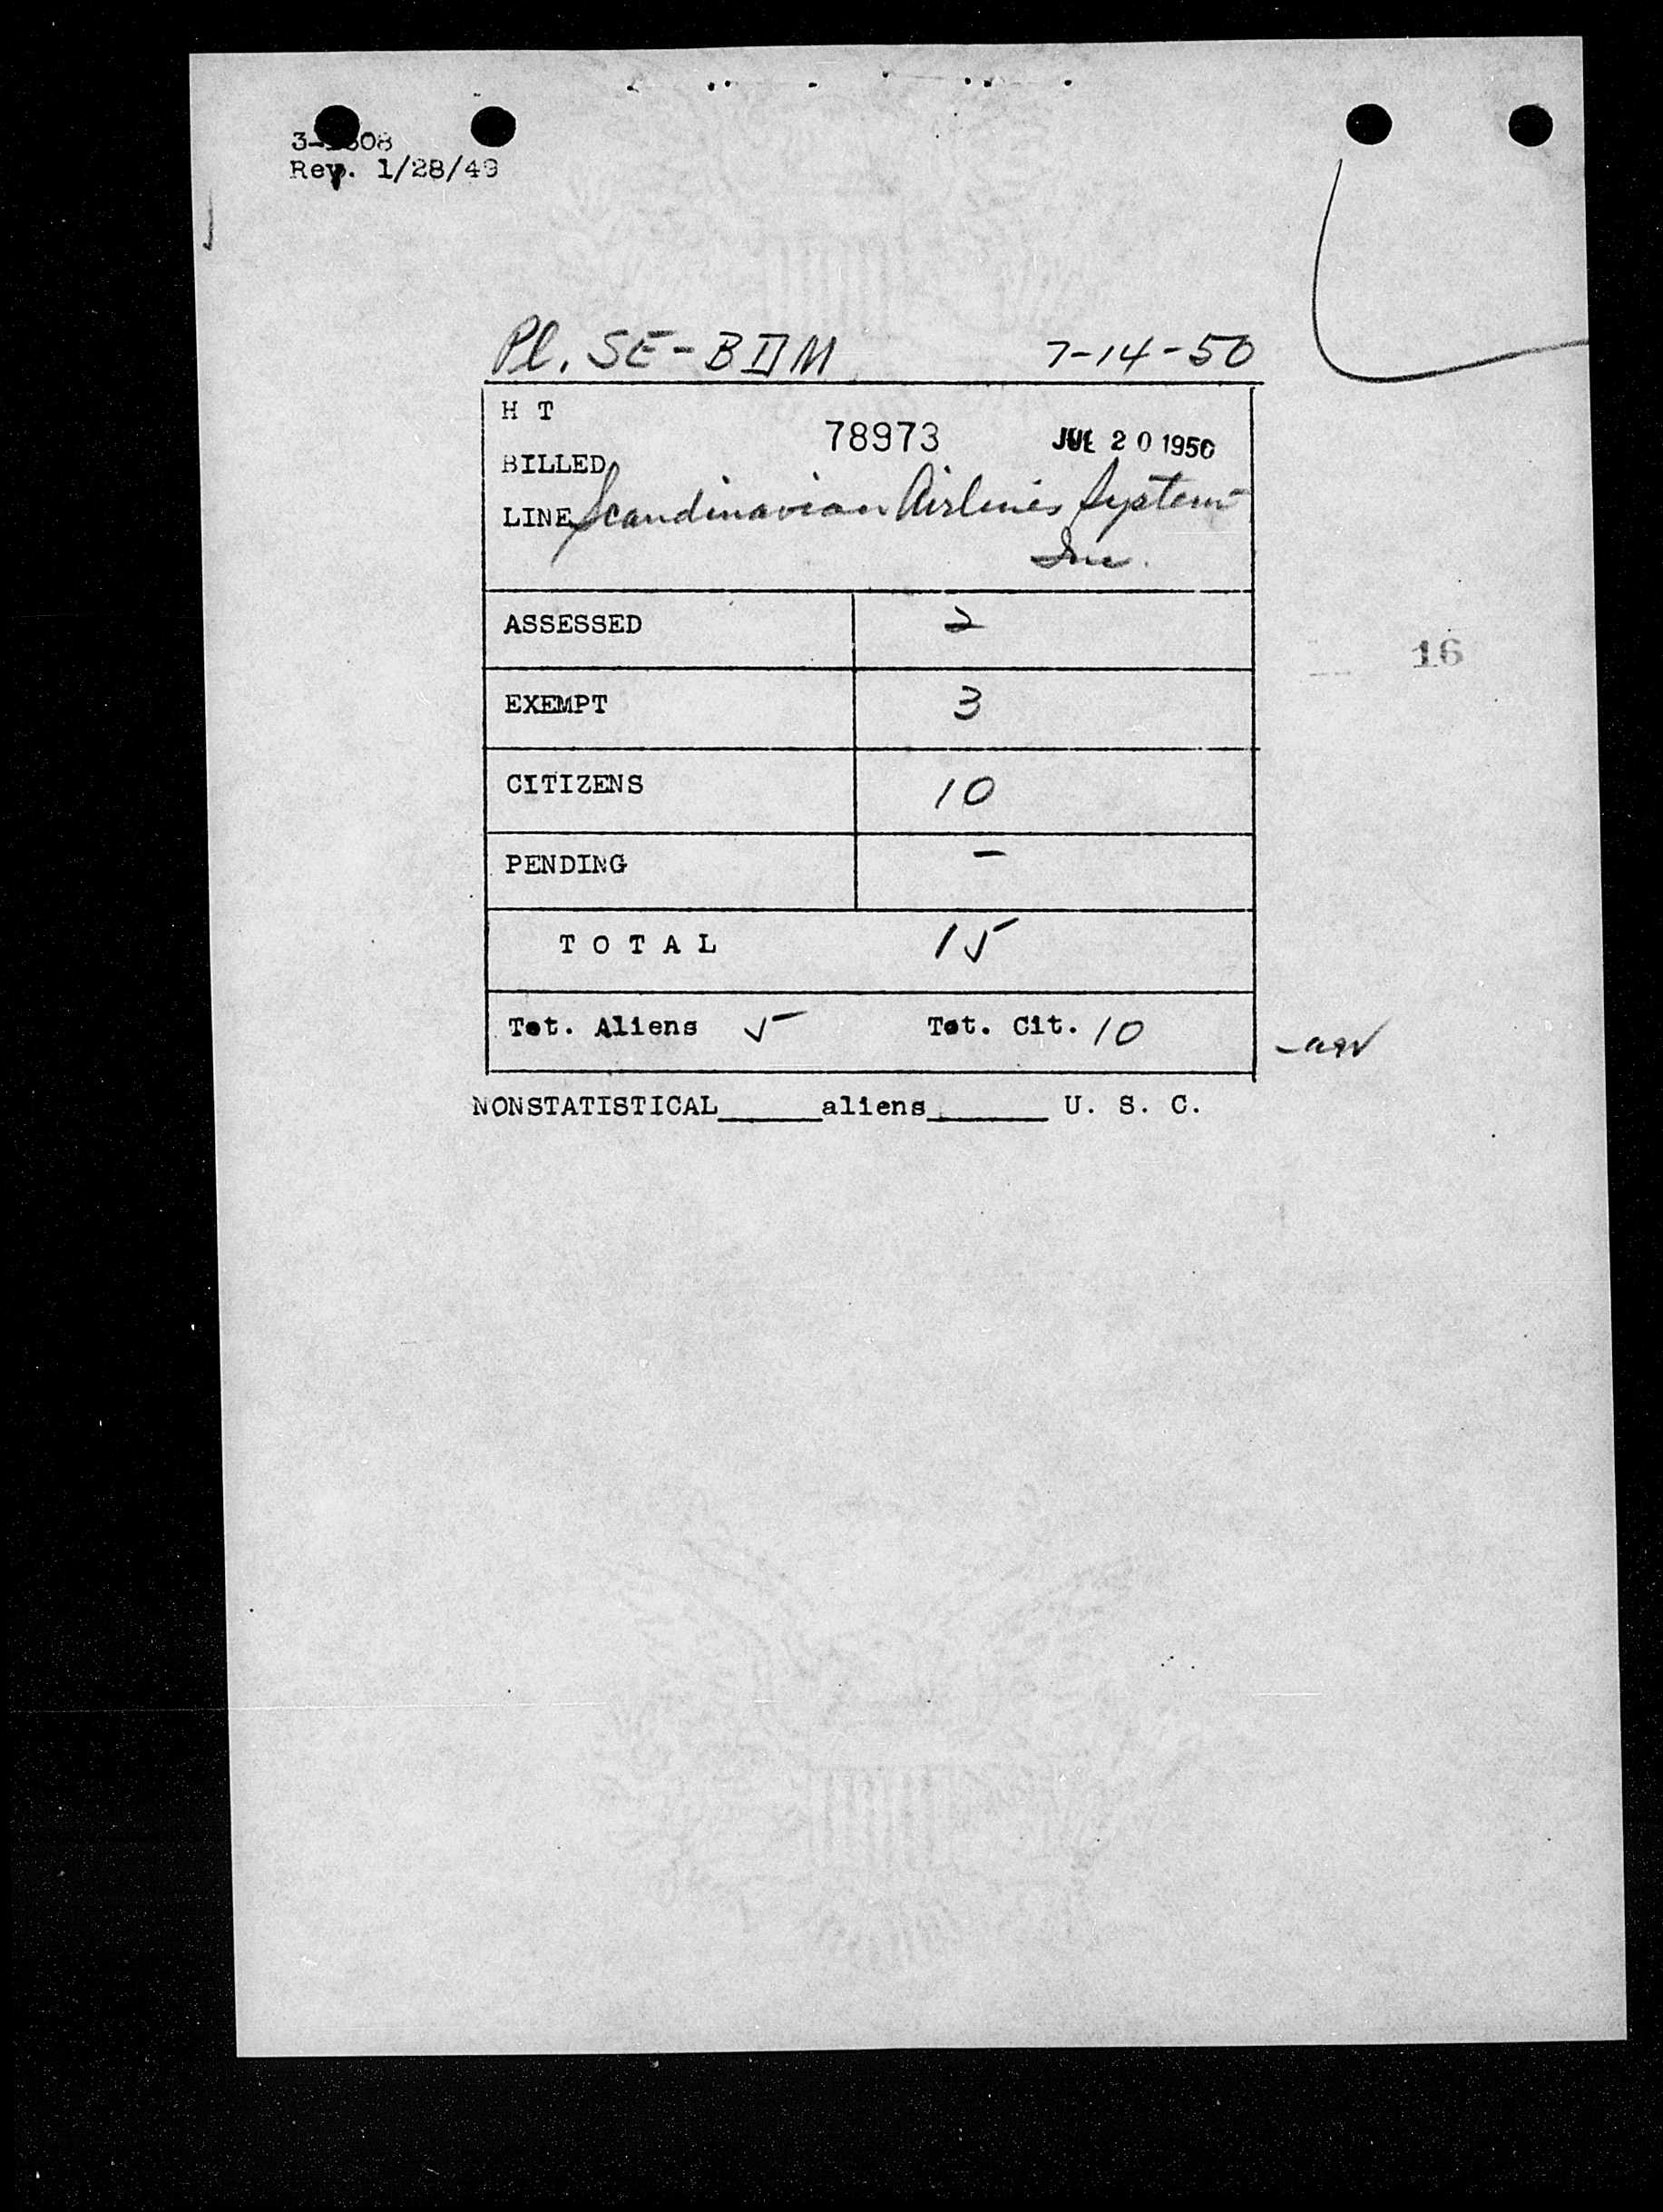 Rev. 1/28/49
Pl. SE-BIIM 7-14-50
H T
78973 JUL 20 1950
BILLED
LINE Scandinavian Airlines System
Inc.
ASSESSED 2
EXEMPT 3
16
CITIZENS 10
PENDING -
TOTAL 15
Tot. Aliens 5 Tot. Cit. 10
NONSTATISTICAL______aliens_______ U. S. C.